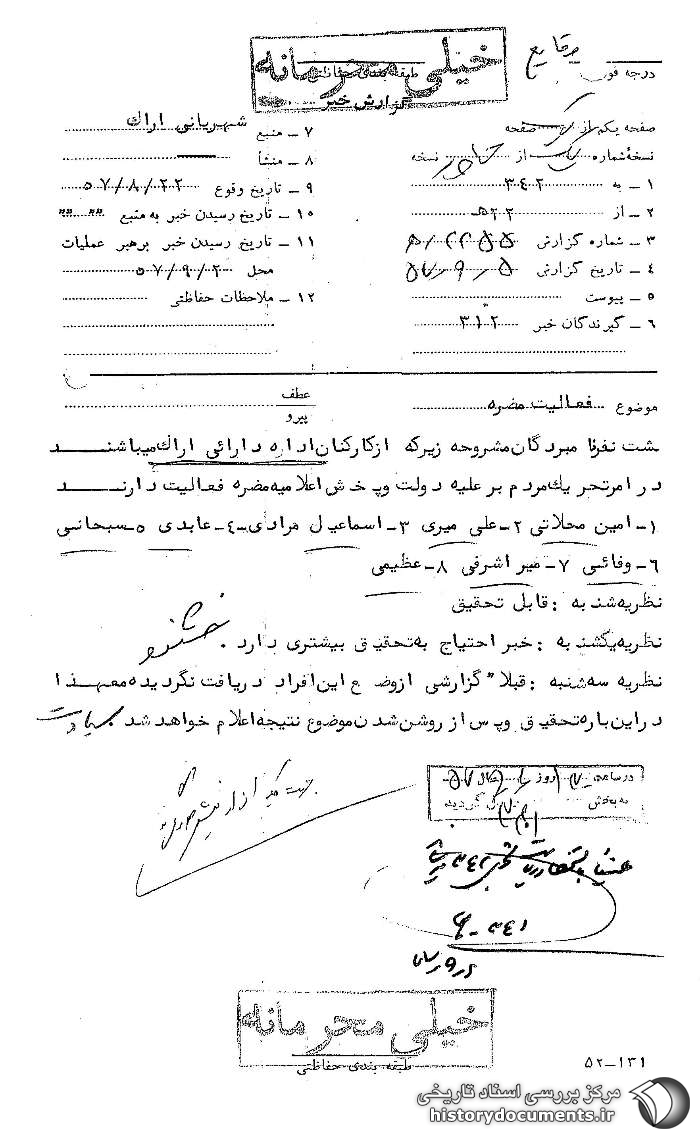 وقایع
خیلی محرمانه
درجه فور
طبقه بندی حفاظتی
گزارش خبر
صفحه یکم از صفحه
نسخهٔ شماره یک از نسخه
۱ ـ به ۳۴۲
۲ ـ از ۲۲هـ
۳ ـ شماره گزارش
۴ ـ تاریخ گزارش ۵۷/۹/۵
۵ ـ پیوست
۶ ـ گیرندگان خبر ۳۱۲
۷ ـ منبع شهربانی اراك
۸ ـ منشأ
۹ ـ تاریخ وقوع ۵۷/۸/۲۲
۱۰ ـ تاریخ رسیدن خبر به منبع " " " "
۱۱ ـ تاریخ رسیدن خبر برهبر عملیات
محل ۵۷/۹/۲
۱۲ ـ ملاحظات حفاظتی
موضوع فعالیت مضره
عطف
پیرو
هشت نفر نامبردگان مشروحه زیر که از کارکنان اداره دارائی اراك میباشند
در امر تحریك مردم بر علیه دولت و پخش اعلامیه مضره فعالیت دارند
۱ـ امین محلاتی ۲ـ علی میری ۳ـ اسماعیل مرادی ۴ـ عابدی ۵ـ سبحانی
۶ـ وفائی ۷ـ میر اشرفی ۸ـ عظیمی
نظریه شنبه : قابل تحقیق
نظریه یکشنبه : خبر احتیاج به تحقیق بیشتری دارد .
نظریه سه شنبه : قبلا" گزارشی از وضع این افراد دریافت نگردیده معهذا
در این باره تحقیق و پس از روشن شدن موضوع نتیجه اعلام خواهد شد .
در ساعت روز
به بخش گردید
خیلی محرمانه
طبقه بندی حفاظتی
۵۲ـ۱۳۱
مرکز بررسی اسناد تاریخی
historydocuments.ir